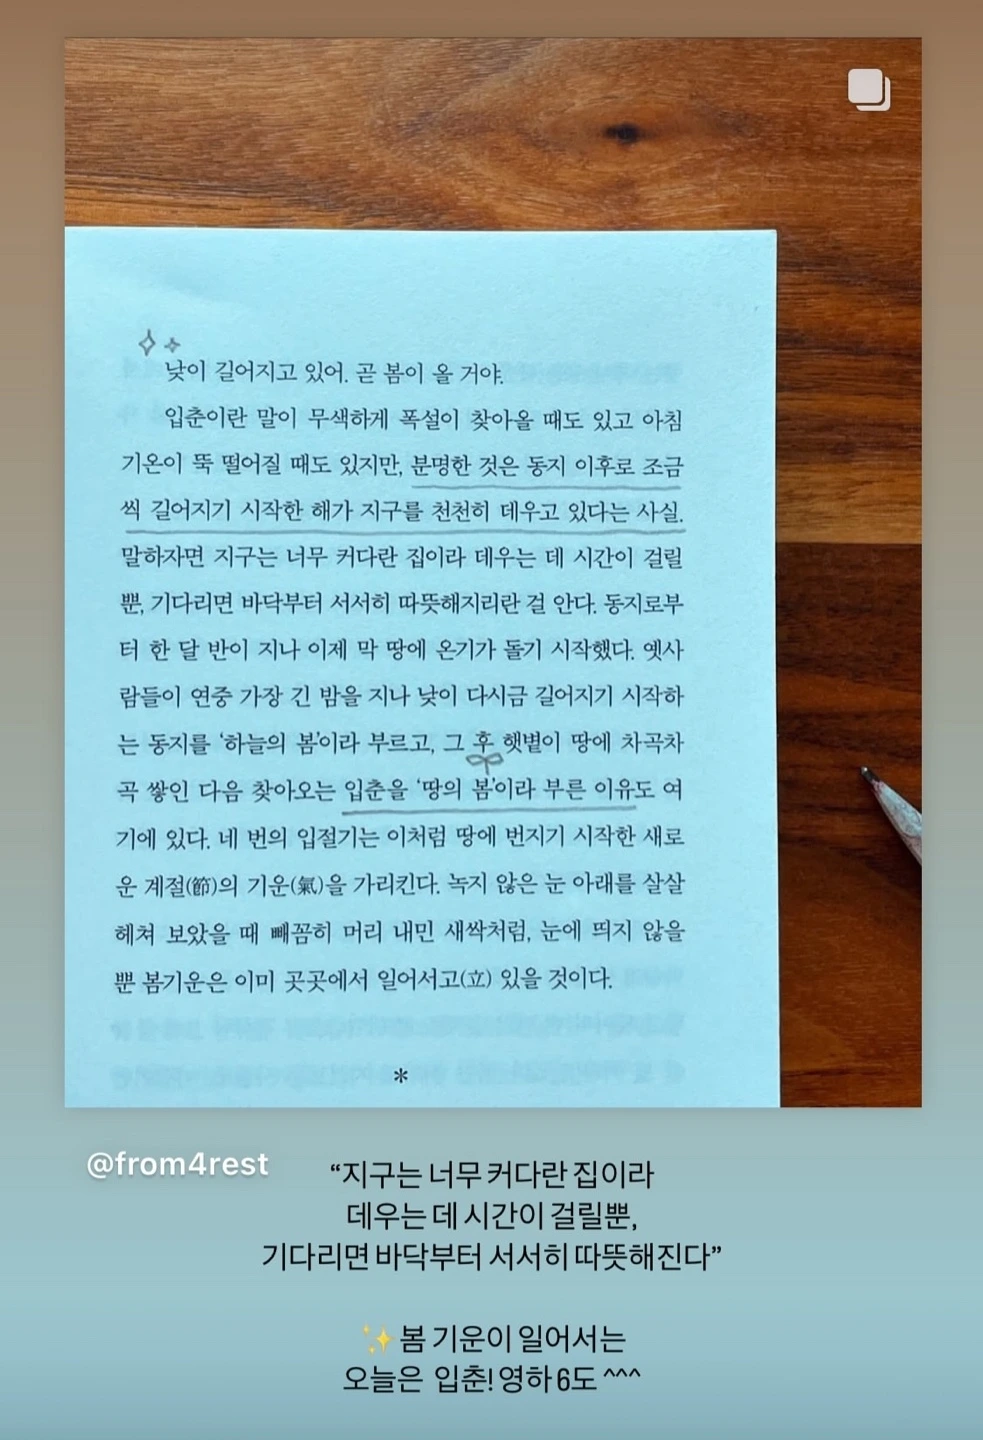 낮이 길어지고 있어. 곧 봄이 올 거야.
입춘이란 말이 무색하게 폭설이 찾아올 때도 있고 아침
기온이 뚝 떨어질 때도 있지만, 분명한 것은 동지 이후로 조금
씩 길어지기 시작한 해가 지구를 천천히 데우고 있다는 사실.
말하자면 지구는 너무 커다란 집이라 데우는 데 시간이 걸릴
뿐, 기다리면 바닥부터 서서히 따뜻해지리란 걸 안다. 동지로부
터 한 달 반이 지나 이제 막 땅에 온기가 돌기 시작했다. 옛사
람들이 연중 가장 긴 밤을 지나 낮이 다시금 길어지기 시작하
는 동지를 ‘하늘의 봄’이라 부르고, 그 후 햇볕이 땅에 차곡차
곡 쌓인 다음 찾아오는 입춘을 ‘땅의 봄’이라 부른 이유도 여
기에 있다. 네 번의 입절기는 이처럼 땅에 번지기 시작한 새로
운 계절(節)의 기운(氣)을 가리킨다. 녹지 않은 눈 아래를 살살
헤쳐 보았을 때 빼꼼히 머리 내민 새싹처럼, 눈에 띄지 않을
뿐 봄기운은 이미 곳곳에서 일어서고(立) 있을 것이다.
*
@from4rest
“지구는 너무 커다란 집이라
데우는 데 시간이 걸릴뿐,
기다리면 바닥부터 서서히 따뜻해진다”
✨ 봄 기운이 일어서는
오늘은 입춘! 영하 6도 ^^^